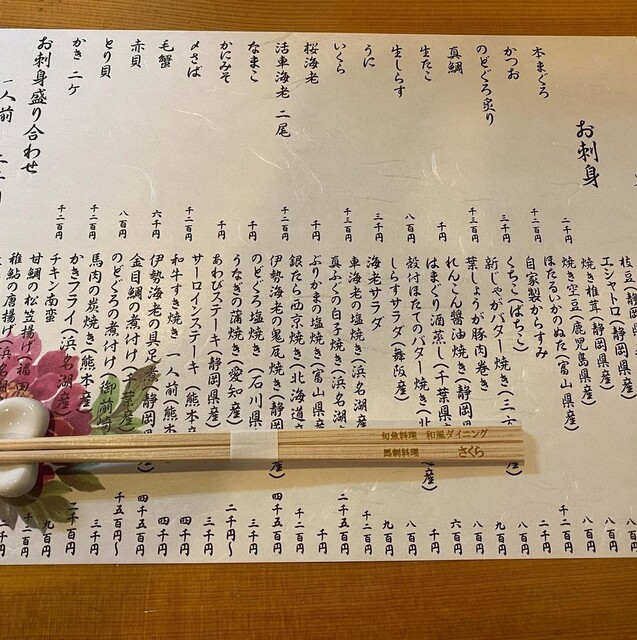 お刺身
本まぐろ 二千円
かつお 千二百円
のどぐろ炙り 三千円
真鯛 千二百円
生たこ 千円
生しらす 八百円
うに 三千円
いくら 千三百円
桜海老 千円
活車海老 二尾 千二百円
なまこ 千円
かにみそ 千円
〆さば 千二百円
毛蟹 六千円
赤貝 八百円
とり貝 千二百円
かき 二ケ 千二百円
お刺身盛り合わせ
一人前
枝豆(静岡県産)
エシャトロ(静岡県産)
焼き椎茸(静岡県産) 八百円
焼き空豆(鹿児島県産) 八百円
ほたるいかのぬた(富山県産) 千二百円
自家製からすみ 二千円
くちこ(ばちこ) 八百円
新じゃがバター焼き(三
葉しょうが豚肉巻き 八百円
れんこん醤油焼き(静岡県産) 六百円
はまぐり酒蒸し(千葉県産) 千円
殻付ほたてのバター焼き(北 産) 八百円
しらすサラダ(舞阪産) 九百円
海老サラダ 千二百円
車海老の塩焼き(浜名湖産) 二千五百円
真ふぐの白子焼き(浜名湖 千円
ぶりかまの塩焼き(富山県産 千二百円
銀たら西京焼き(北海道
伊勢海老の鬼瓦焼き(静岡 産) 四千五百円
のどぐろ塩焼き(石川県 三千円
うなぎの蒲焼き(愛知産) 二千円〜
あわびステーキ(静岡県産) 三千円
サーロインステーキ(熊本産 四千円
和牛すき焼き 一人前(熊本
伊勢海老の具足煮(静岡県 四千五百円
金目鯛の煮付け(千葉産)
のどぐろの煮付け(御前崎 千五百円〜
馬肉の炭焼き(熊本産 三千円
かきフライ(浜名湖産)
チキン南蛮 九百円
甘鯛の松笠揚げ(福岡
稚鮎の唐揚げ(浜名湖
旬魚料理 和風ダイニング
馬刺料理 さくら